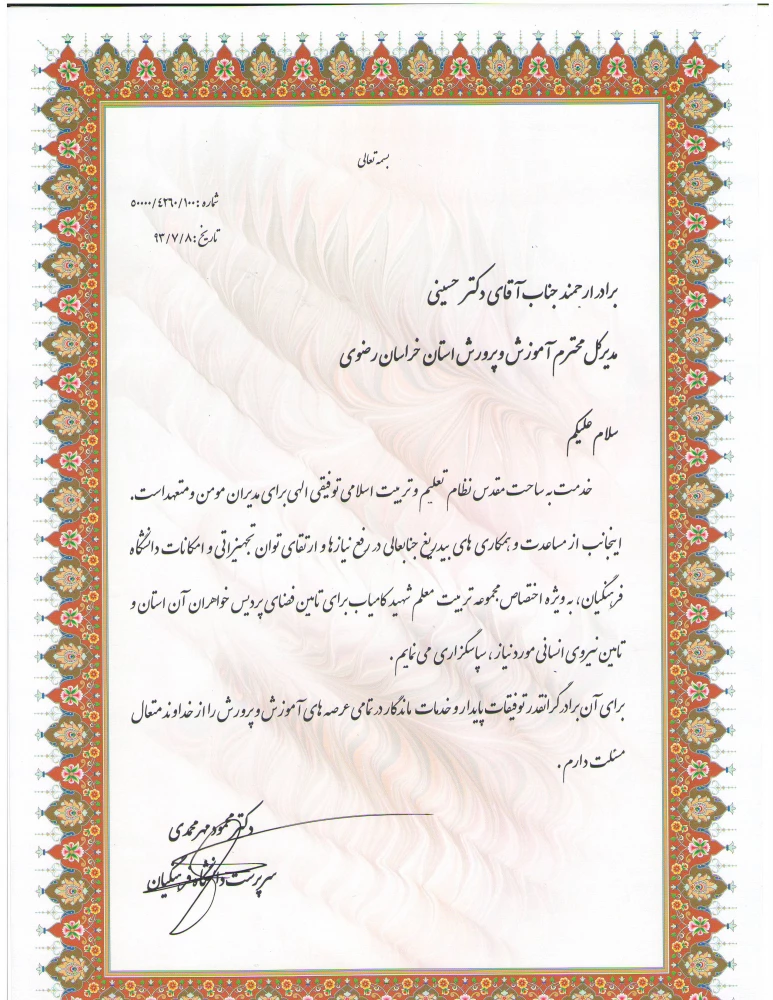 بسمه تعالی
شماره :۵۰۰۰۰/۴۲۶۰/۱۰۰
تاریخ :۹۳/۷/۸
برادر ارجمند جناب آقای دکتر حسینی
مدیرکل محترم آموزش و پرورش استان خراسان رضوی
سلام علیکم
خدمت به ساحت مقدس نظام تعلیم و تربیت اسلامی توفیقی الهی برای مدیران مومن و متعهد است.
اینجانب از مساعدت و همکاری های بیدریغ جنابعالی در رفع نیازها و ارتقای توان تجهیزاتی و امکانات دانشگاه
فرهنگیان، به ویژه اختصاص مجموعه تربیت معلم شهید کامیاب برای تامین فضای پردیس خواهران آن استان و
تامین نیروی انسانی مورد نیاز ، سپاسگزاری می نمایم .
برای آن برادر گرانقدر توفیقات پایدار و خدمات ماندگار در تمامی عرصه های آموزش و پرورش را از خداوند متعال
مسئلت دارم .
دکتر محمود مهرمحمدی
سرپرست دانشگاه فرهنگیان